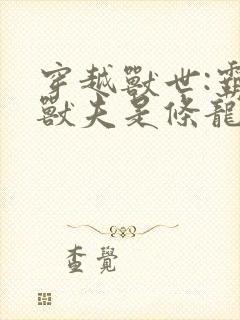 穿越獸世:霸
獸夫是條龍
查覺